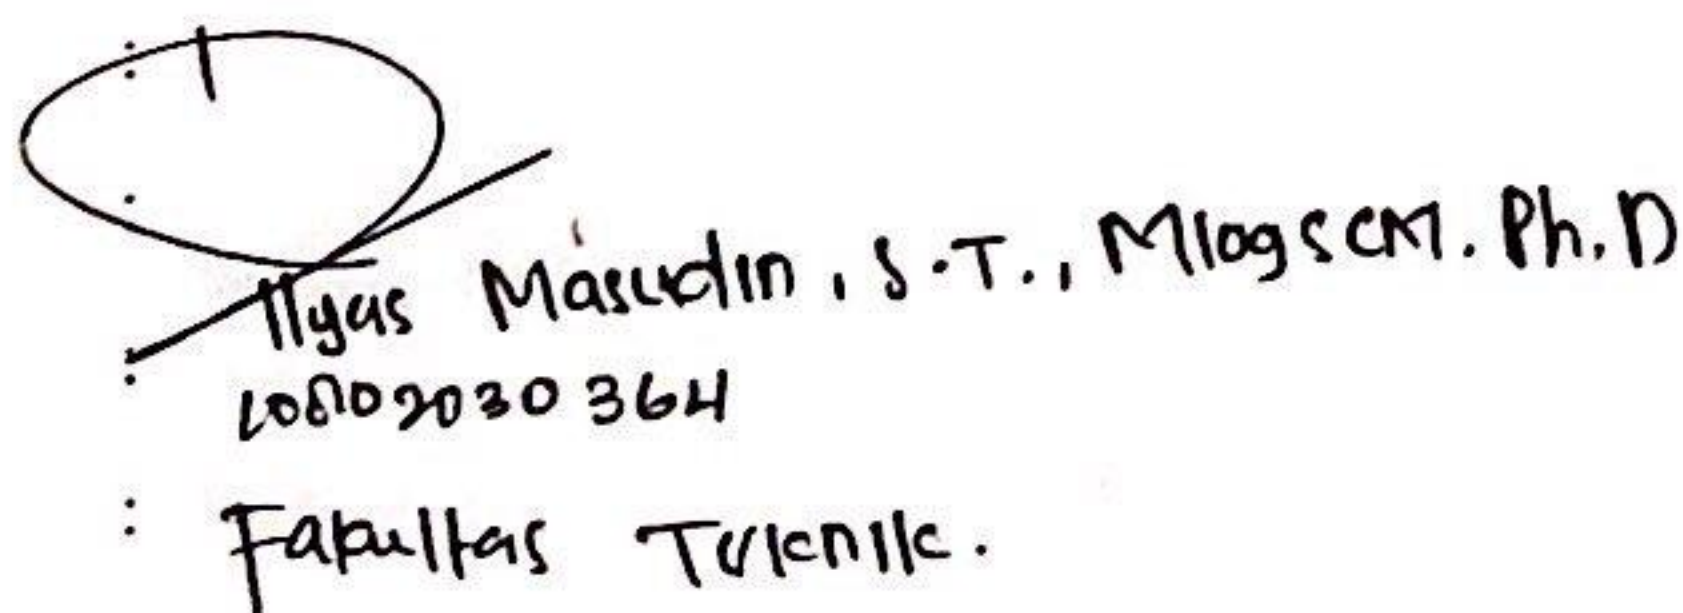 :
: Ilyas Masudin, S.T., MlogSCM. Ph.D
: 10802030364
: Fakultas Teknik.